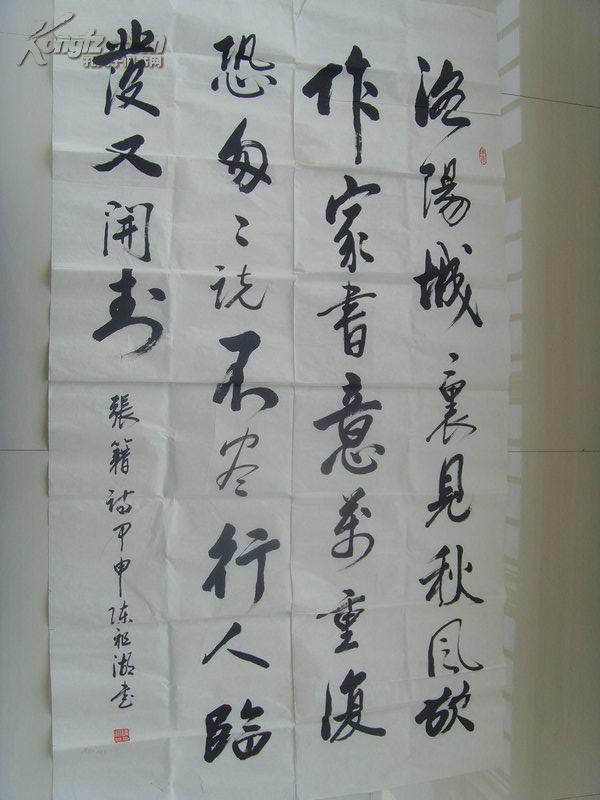 洛陽城裏見秋風欲
作家書意萬重復
恐匆〻說不盡行人臨
發又開封
張籍詩甲申陈祖湖书
Kongfz.com
孔夫子旧书网